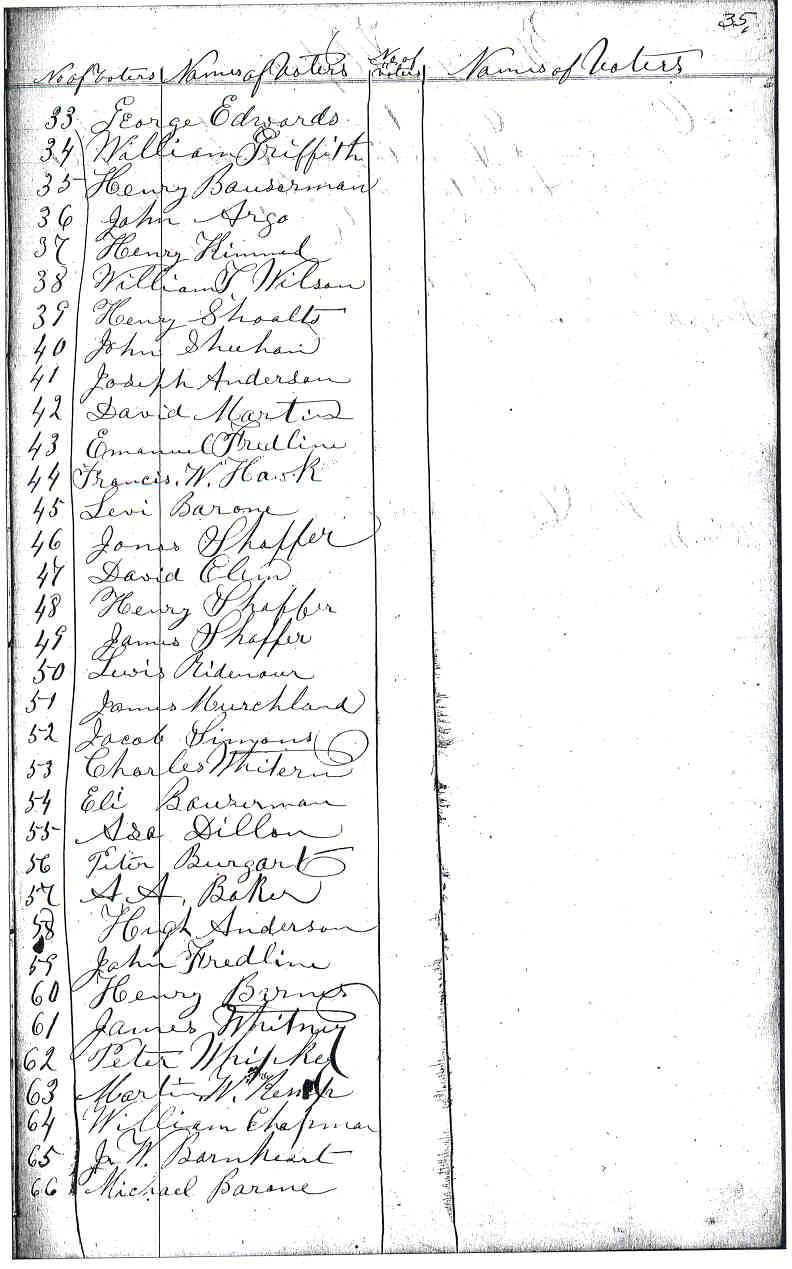 35
No of Voters Names of Voters No of Voters Names of Voters
33 George Edwards
34 William Griffith
35 Henry Bauserman
36 John Argo
37 Henry Kimmel
38 William T Wilson
39 Henry Shoalts
40 John Sheehan
41 Joseph Anderson
42 David Martin
43 Emanuel Fredline
44 Francis. W. Hawk
45 Levi Barone
46 Jonas Shaffer
47 David Elim
48 Henry Shaffer
49 James Shaffer
50 Lewis Ridenour
51 James Murchland
52 Jacob Simons
53 Charles Whitern
54 Eli Bauserman
55 Asa Dillon
56 Peter Burgart
57 A. A. Baker
58 Hugh Anderson
59 John Fredline
60 Henry Barnes
61 James Whitney
62 Peter Whipkey
63 Martin W.
64 William Chapman
65 Jr W. Barnheart
66 Michael Barone